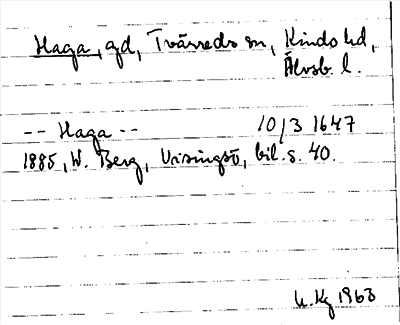 Haga, gd, Tvärreds sn, Kinds hd,
Älvsb. l.
-- Haga -- 10/3 1647
1885, W. Berg, Visingsö, bil. s. 40.
1963